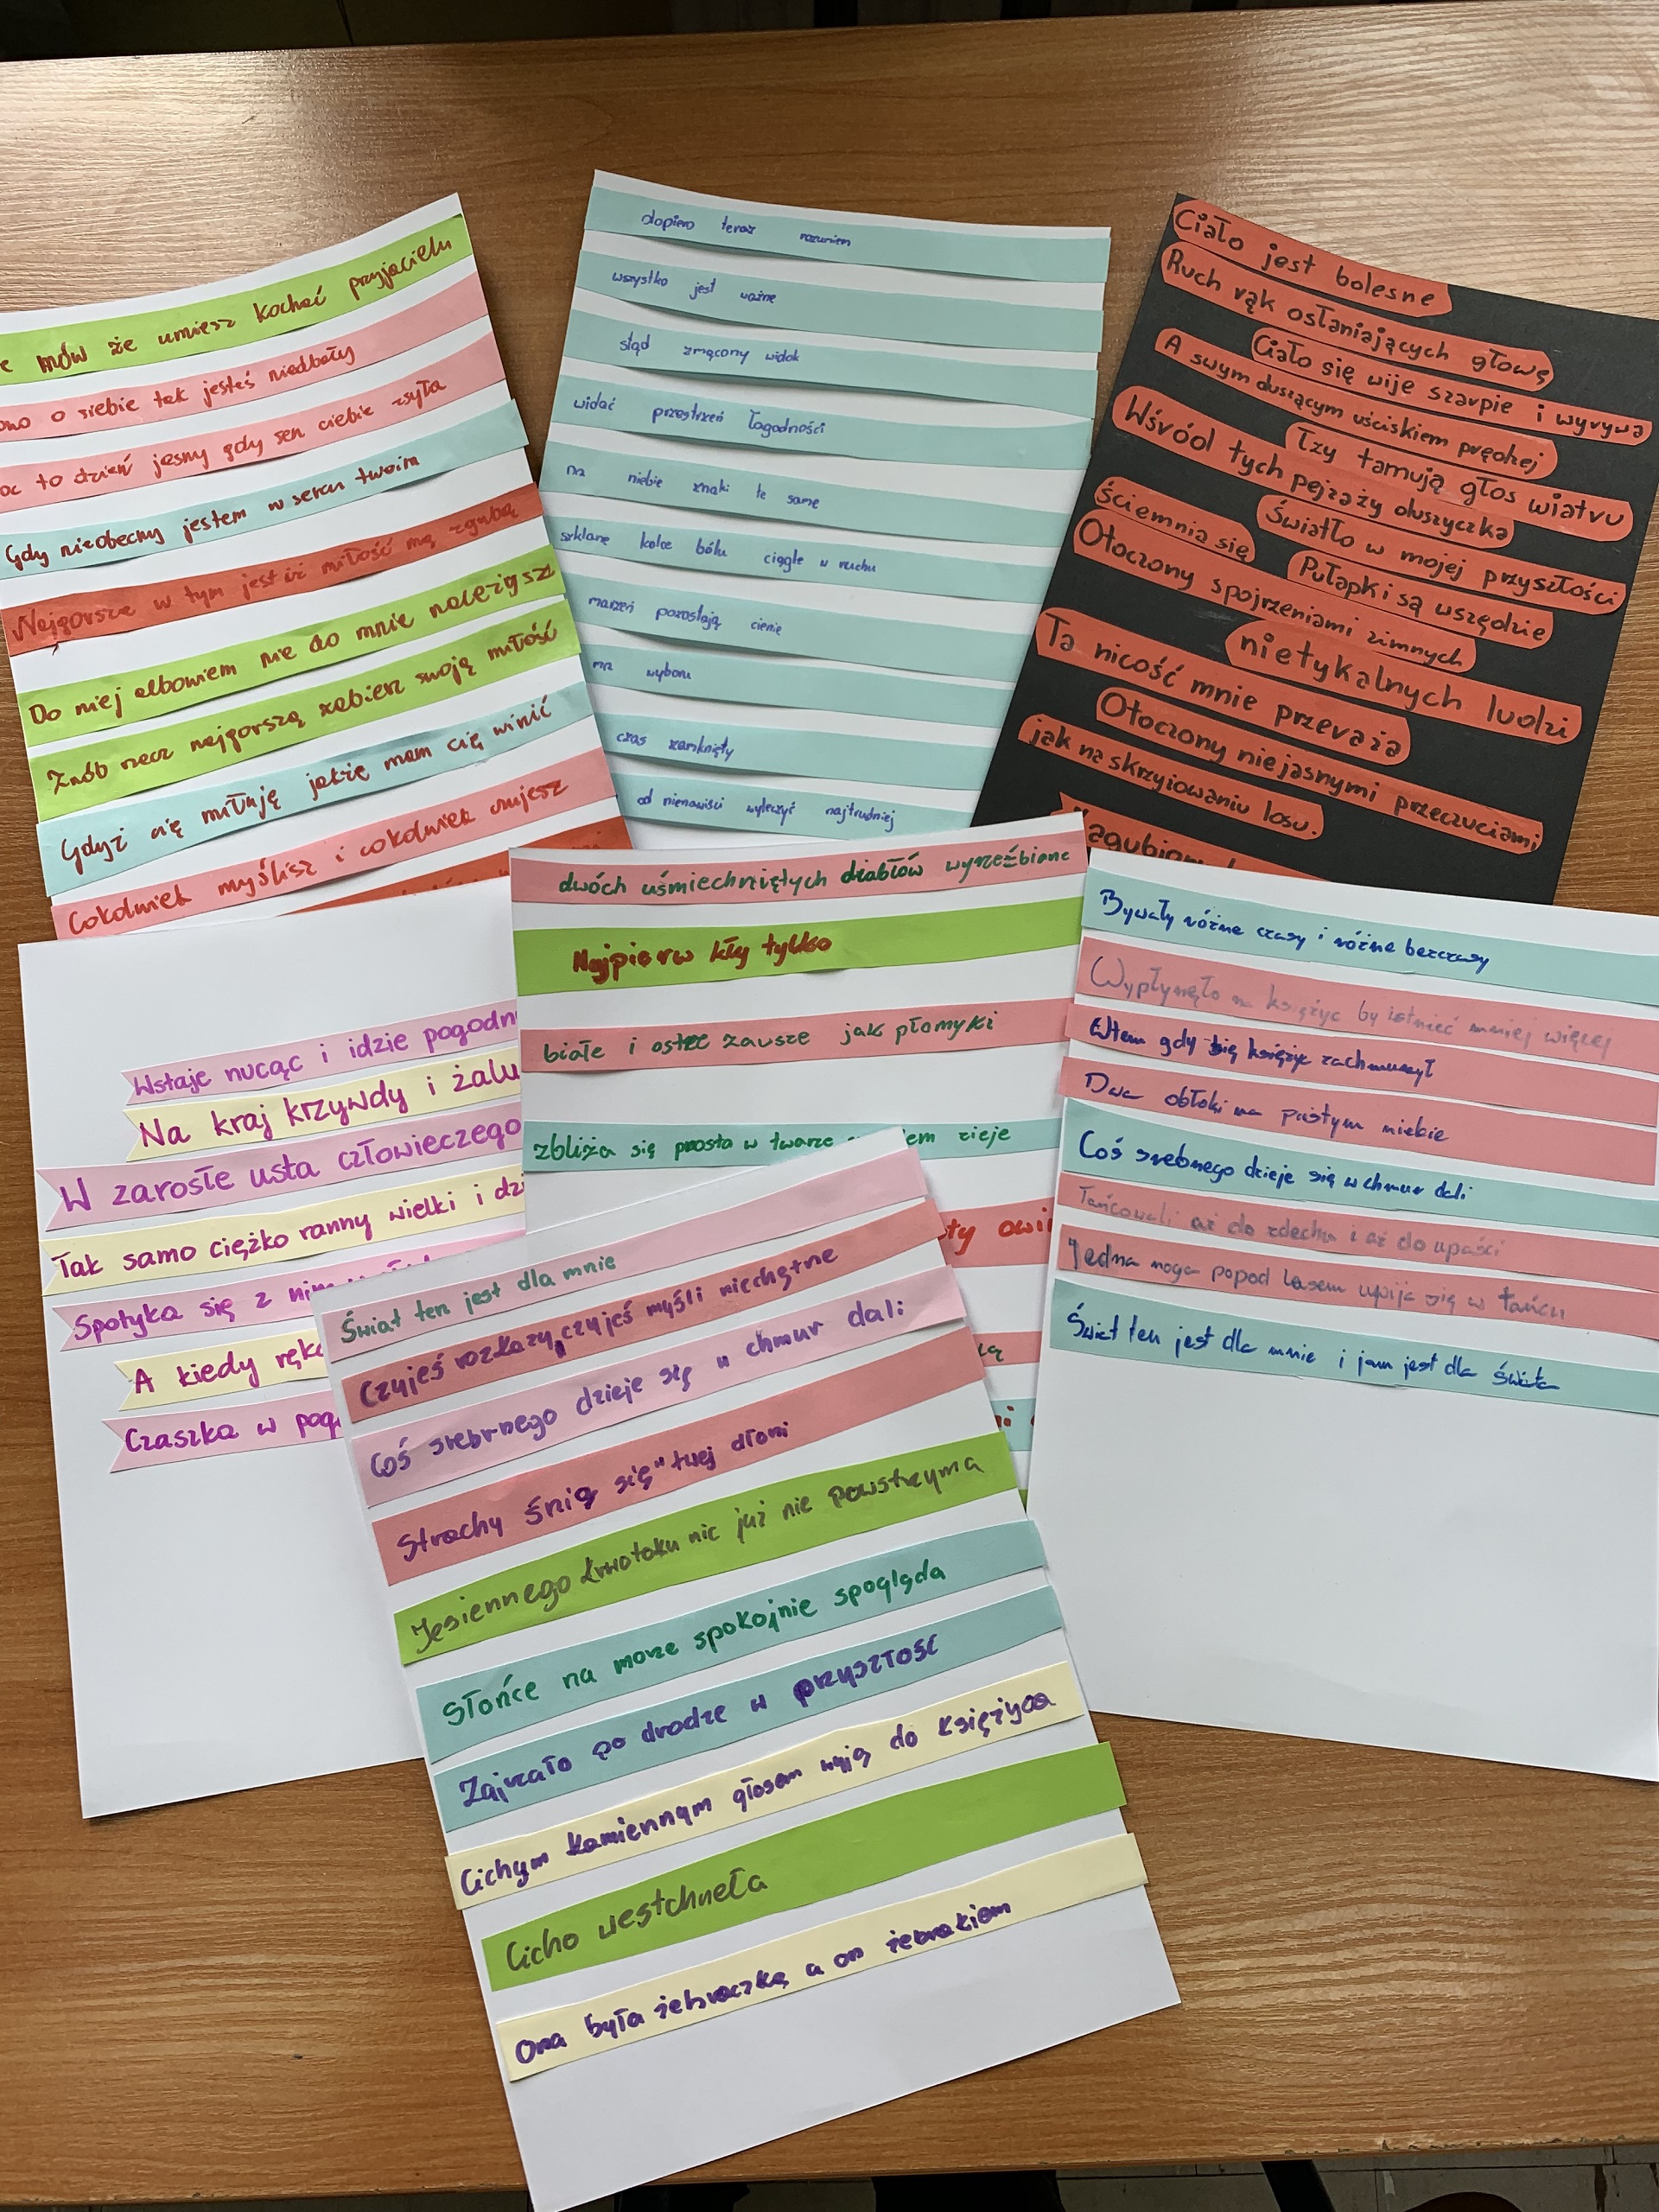 mów że umiesz kochać przyjacielu
o siebie tak jesteś niedbały
to dzień jasny gdy sen ciebie zsyła
Gdy nieobecny jestem w sercu twoim
Najgorsze w tym jest iż miłość mą zgubą
Do niej albowiem nie do mnie należysz
Zrób rzecz najgorszą zabierz swoją miłość
Gdyż cię miłuję jakże mam cię winić
Cokolwiek myślisz i cokolwiek czujesz
dopiero teraz rozumiem
wszystko jest ważne
stąd zmącony widok
widać przestrzeń łagodności
na niebie znaki te same
szklane kolce bólu ciągle w ruchu
marzeń pozostają cienie
na wyboru
czas zamknięty
od nienawiści wyleczyć najtrudniej
Ciało jest bolesne
Ruch rąk osłaniających głowę
Ciało się wije szarpie i wyrywa
A swym duszącym uściskiem prędkej
Łzy tamują głos wiatru
Wśród tych pejzaży duszyczka
Światło w mojej przyszłości
ściemnia się
Pułapki są wszędzie
Otoczony spojrzeniami zimnych
nietykalnych ludzi
Ta nicość mnie przeraża
Otoczony niejasnymi przeczuciami
jak na skrzyżowaniu losu.
Wstaje nucąc i idzie
Na kraj krzywdy i żalu
W zarosłe usta człowieczego
Tak samo ciężko ranny wielki i
Spotyka się z
A kiedy
Czaszka w
dwóch uśmiechniętych diabłów wyrzeźbione
Najpierw kły tylko
białe i ostre zawsze jak płomyki
zbliża się prosto w twarze zieje
Bywały różne czasy i różne bezczasy
Wypłynęło na księżyc by istnieć mniej więcej
Wtem gdy się księżyc zachmurzył
Dwa obłoki na pustym niebie
Coś srebrnego dzieje się w chmur dali
Tańcowali aż do zdechu i aż do upaści
Jedna noga popod lasem upija się w tańcu
Świat ten jest dla mnie i jam jest dla świata
Świat ten jest dla mnie
Czyjeś rozkazy, czyjeś myśli niechętne
Coś srebrnego dzieje się w chmur dali:
Strachy śnią się w twej dłoni
Jesiennego krwotoku nic już nie powstrzyma
Słońce na morze spokojnie spogląda
Zajrzało po drodze w przyszłość
Cichym kamiennym głosem wyją do księżyca
Cicho westchnęła
Ona była żebraczką a on żebrakiem